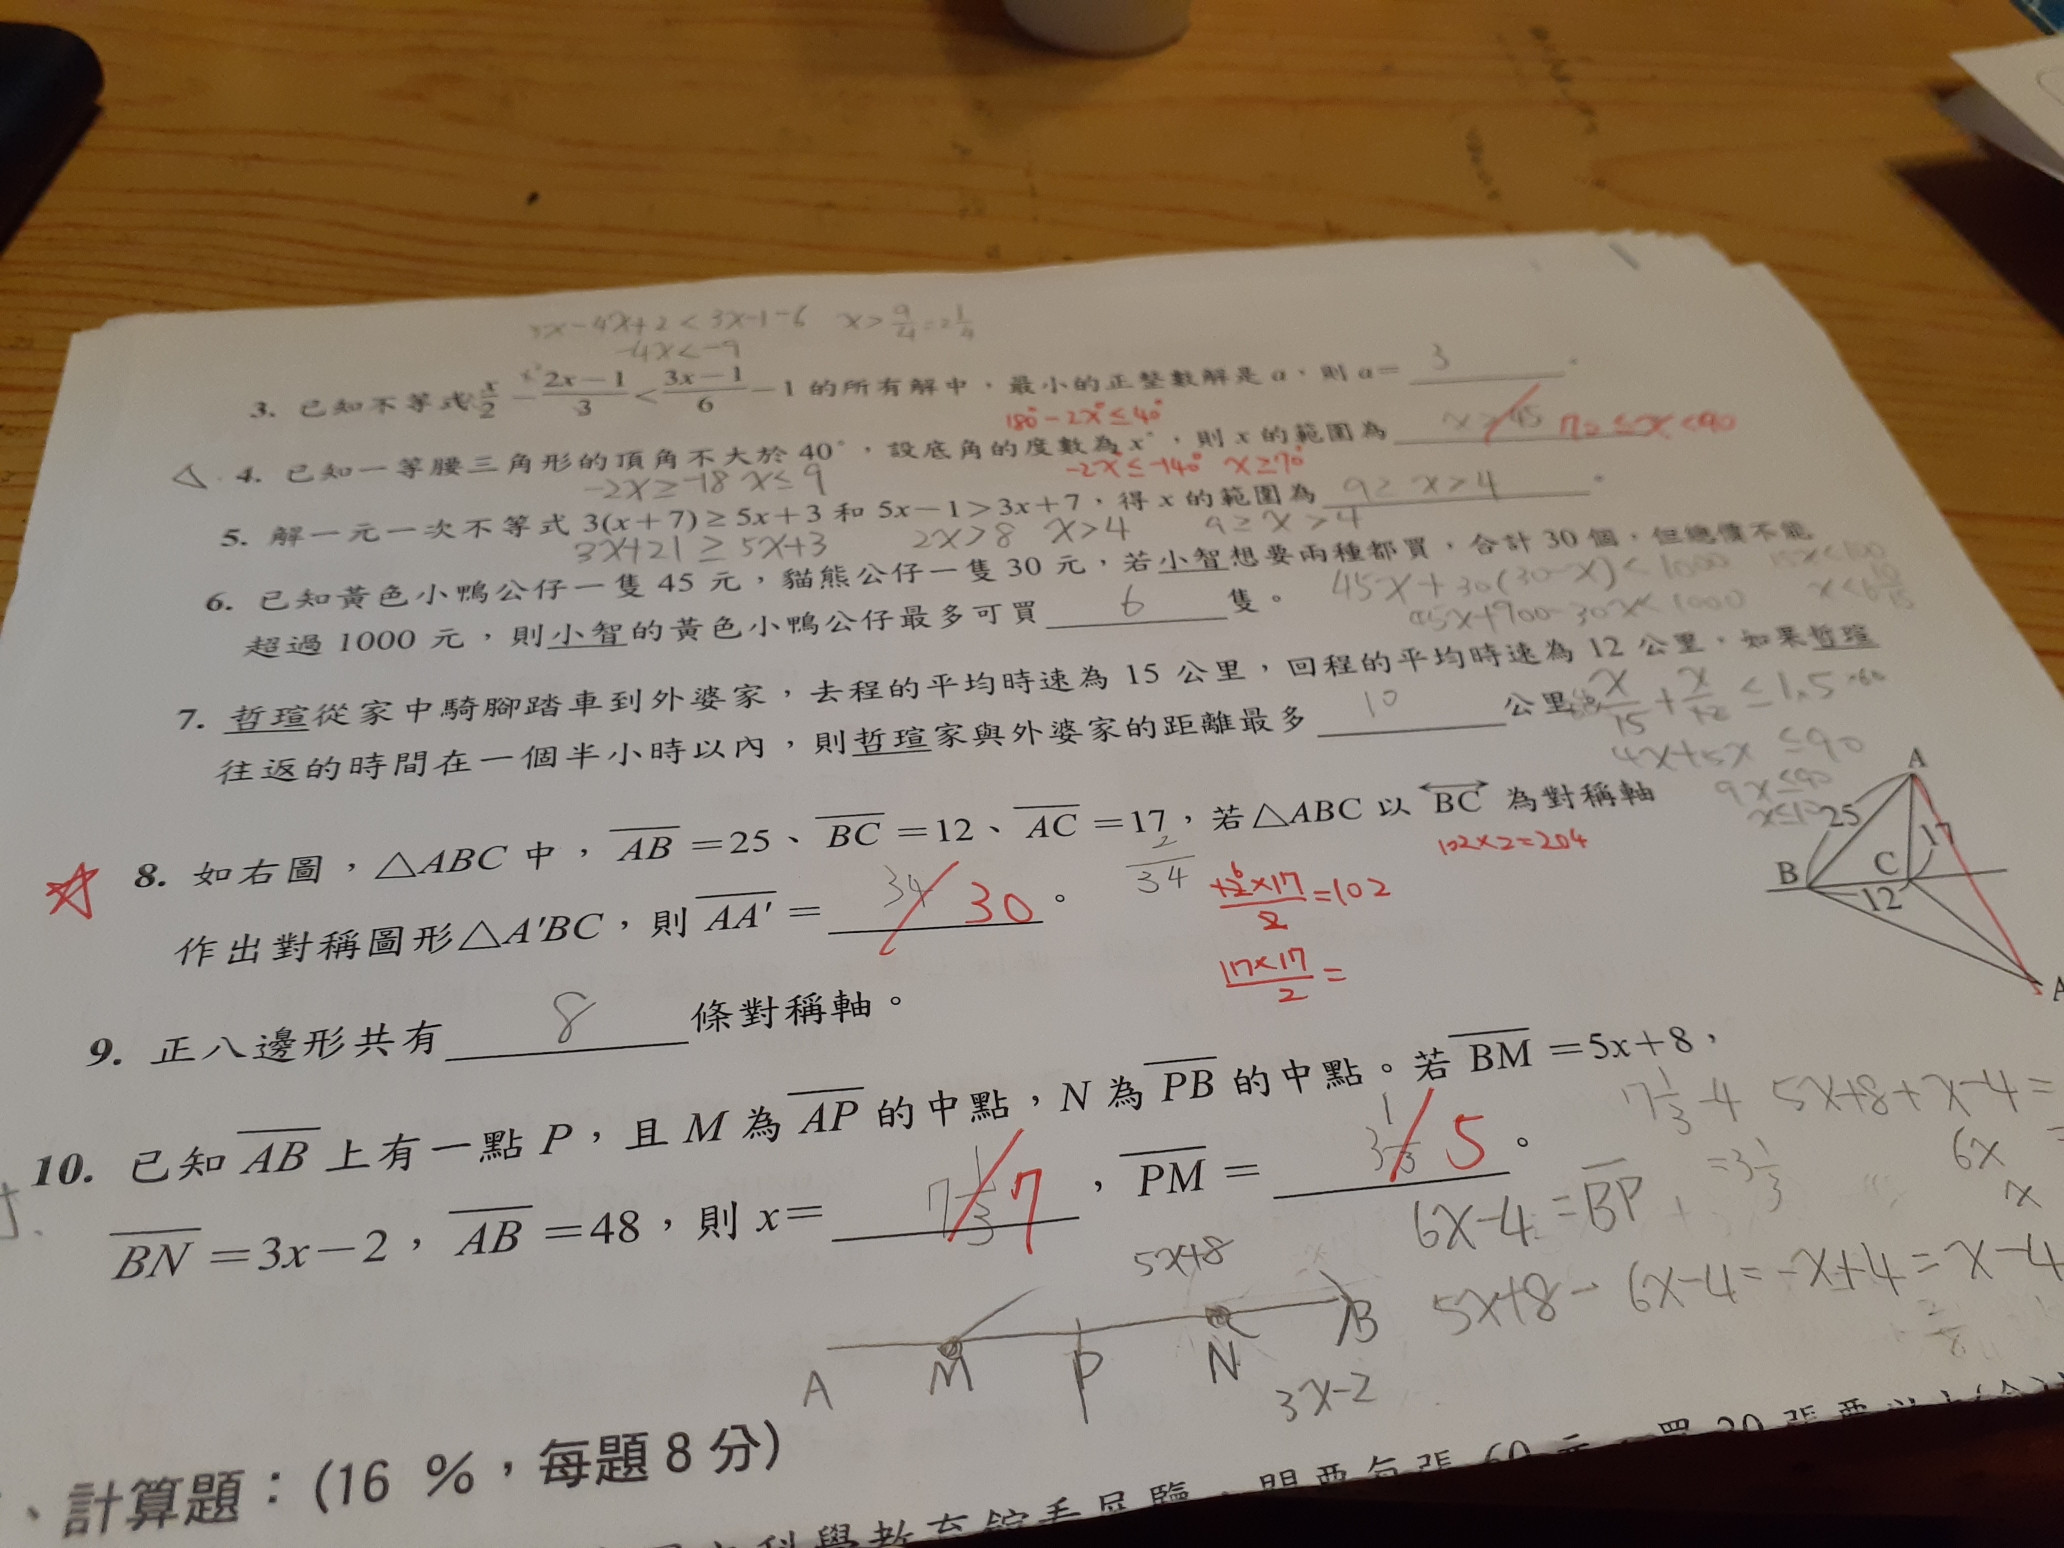 3x-4x+2<3x-1-6 x>9/4=2 1/4
-4x<-9
3. 已知不等式 x/2 - (2x-1)/3 < (3x-1)/6 - 1 的所有解中，最小的正整數解是 a，則 a= 3 。
180°-2x°≤40°
△ 4. 已知一等腰三角形的頂角不大於 40°，設底角的度數為 x°，則 x 的範圍為 x>45 70≤x<90
-2x≥-18 x≤9 -2x°≤-140° x≥70°
5. 解一元一次不等式 3(x+7)≥5x+3 和 5x-1>3x+7，得 x 的範圍為 9≥x>4 。
3x+21≥5x+3 2x>8 x>4 9≥x>4
6. 已知黃色小鴨公仔一隻 45 元，貓熊公仔一隻 30 元，若小智想要兩種都買，合計 30 個，但總價不能
超過 1000 元，則小智的黃色小鴨公仔最多可買 6 隻。
45x+30(30-x)<1000 15x<100
45x+900-30x<1000 x<6 10/15
7. 哲瑄從家中騎腳踏車到外婆家，去程的平均時速為 15 公里，回程的平均時速為 12 公里，如果哲瑄
往返的時間在一個半小時以內，則哲瑄家與外婆家的距離最多 10 公里。
x/15 + x/12 ≤1.5 ×60
4x+5x ≤90
9x≤90
x≤10
8. 如右圖，△ABC 中，AB=25、BC=12、AC=17，若△ABC 以 BC 為對稱軸
作出對稱圖形△A'BC，則 AA'= 34 30 。
2
34
102×2=204
12 6×17/2=102
17×17/2=
A
25
17
B
C
12
A
9. 正八邊形共有 8 條對稱軸。
10. 已知 AB 上有一點 P，且 M 為 AP 的中點，N 為 PB 的中點。若 BM=5x+8，
BN=3x-2，AB=48，則 x= 7 1/3 7 ，PM= 3 1/3 5 。
7 1/3-4 5x+8+x-4=
=3 1/3 6x =
x
6x-4=BP
5x+8-6x-4=-x+4=x-4
5x+8
A M P N B
3x-2
、計算題：(16 %，每題 8 分)